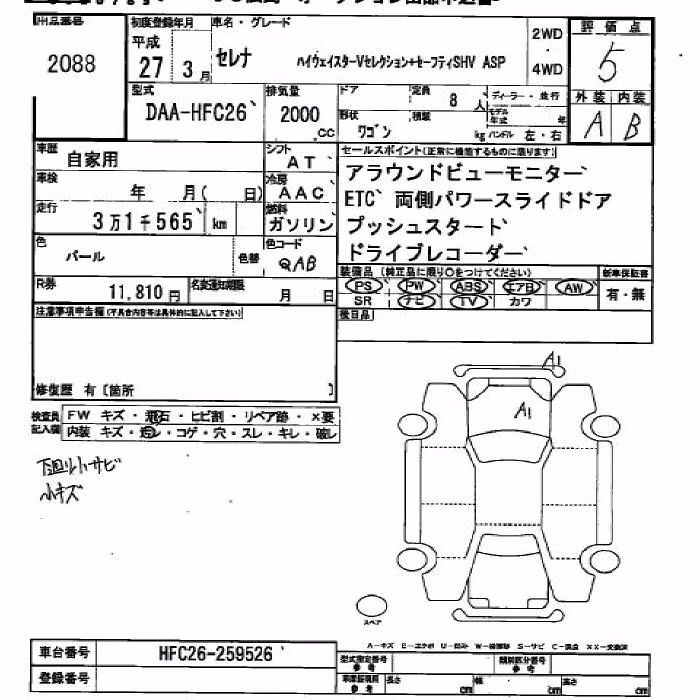 出品番号
2088
初度登録年月
平成
27 3 月
車名・グレード
セレナ ハイウェイスターVセレクション+セーフティSHV ASP
2WD
・
4WD
評価点
5
外装 内装
A B
型式
DAA-HFC26
排気量
2000
cc
ドア 定員 8 人
ディーラー・並行
形状 ワゴン 積載 kg
モデル年式 年
ハンドル 左・右
車歴 自家用
シフト AT
車検 年 月( 日)
冷房 AAC
走行 3万1千565 km
燃料 ガソリン
色 パール 色替
色コード QAB
R券 11,810 円
名変通知期限 月 日
セールスポイント(正常に機能するものに限ります)
アラウンドビューモニター
ETC 両側パワースライドドア
プッシュスタート
ドライブレコーダー
装備品(純正品に限り○をつけてください)
PS PW ABS エアB AW
SR ナビ TV カワ
新車保証書
有・無
後日品
注意事項申告欄(不具合内容等は具体的に記入して下さい)
修復歴 有〔箇所 〕
検査員記入欄
FW キズ・飛石・ヒビ割・リペア跡・×要
内装 キズ・汚レ・コゲ・穴・スレ・キレ・破レ
下廻り小サビ
小キズ
A1
A1
スペア
A-キズ E-エクボ U-凹 W-補修跡 S-サビ C-腐食 XX-交換済
車台番号 HFC26-259526
登録番号
型式指定番号 参考
類別区分番号 参考
車庫証明用 参考 長さ cm 幅 cm 高さ cm